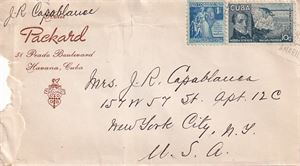 J.R. Capablanca
Packard
51 Prado Boulevard
Havana, Cuba
CUBA
10c
Mrs. J. R. Capablanca
157 W 57 St. Apt. 12C
New York City, N.Y.
U. S. A.